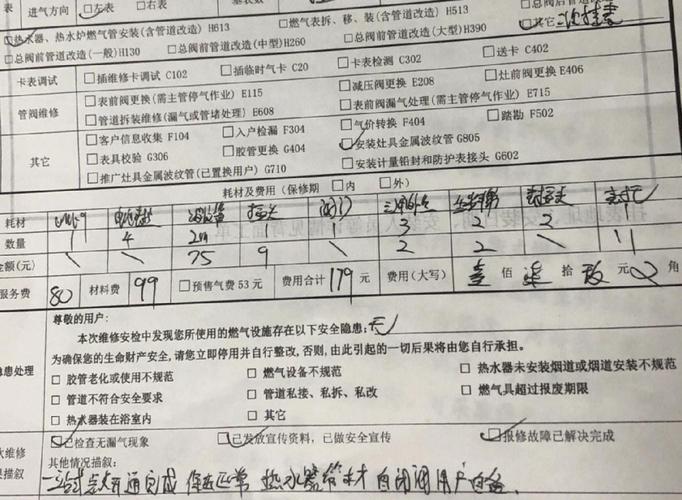 表 进气方向 ☑左表 □右表
☑热水器、热水炉燃气管安装(含管道改造) H613 □燃气表拆、移、装(含管道改造) H513
□总阀前管道改造(一般)H130 □总阀前管道改造(中型)H260 □总阀前管道改造(大型)H390 ☑其它
卡表调试 □插维修卡调试 C102 □插临时气卡 C20 □卡表检测 C302 □送卡 C402
管阀维修 □表前阀更换(需主管停气作业) E115 □减压阀更换 E208 □灶前阀更换 E406
□管道拆装维修(漏气或管堵处理) E608 □表前阀漏气处理(需主管停气作业) E715
其它 □客户信息收集 F104 □入户检漏 F304 □气价转换 F404 □踏勘 F502
□表具校验 G306 □胶管更换 G404 ☑安装灶具金属波纹管 G805
□推广灶具金属波纹管(已置换用户) G710 □安装计量铅封和防护表接头 G602
耗材及费用(保修期 □内 □外)
耗材
数量 1 4 1 3 2 2
金额(元) 75 9 2 2
服务费 80 材料费 99 □预售气费 53 元 费用合计 179 元 费用(大写) 壹 佰 柒 拾 玖 元 角
尊敬的用户:
本次维修安检中发现您所使用的燃气设施存在以下安全隐患: 无
为确保您的生命财产安全,请您立即停用并自行整改,否则,由此引起的一切后果将由您自行承担。
患处理 □胶管老化或使用不规范 □燃气设备不规范 □热水器未安装烟道或烟道安装不规范
□管道不符合安全要求 □管道私接、私拆、私改 □燃气具超过报废期限
□热水器装在浴室内 □其它
次维修 ☑已检查无漏气现象 ☑已发放宣传资料,已做安全宣传 ☑报修故障已解决完成
果描叙 其他情况描叙:
点火开通完成 正常 热水器 自闭阀用户自备